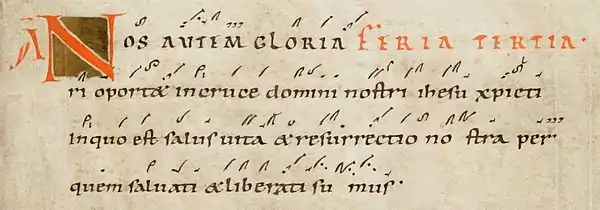 A NOS AUTEM GLORIA FERIA TERTIA.
ri oport& in cruce domini nostri ihesu xpicti
In quo est salus uita & resurrectio no stra per
quem saluati & liberati su mus.